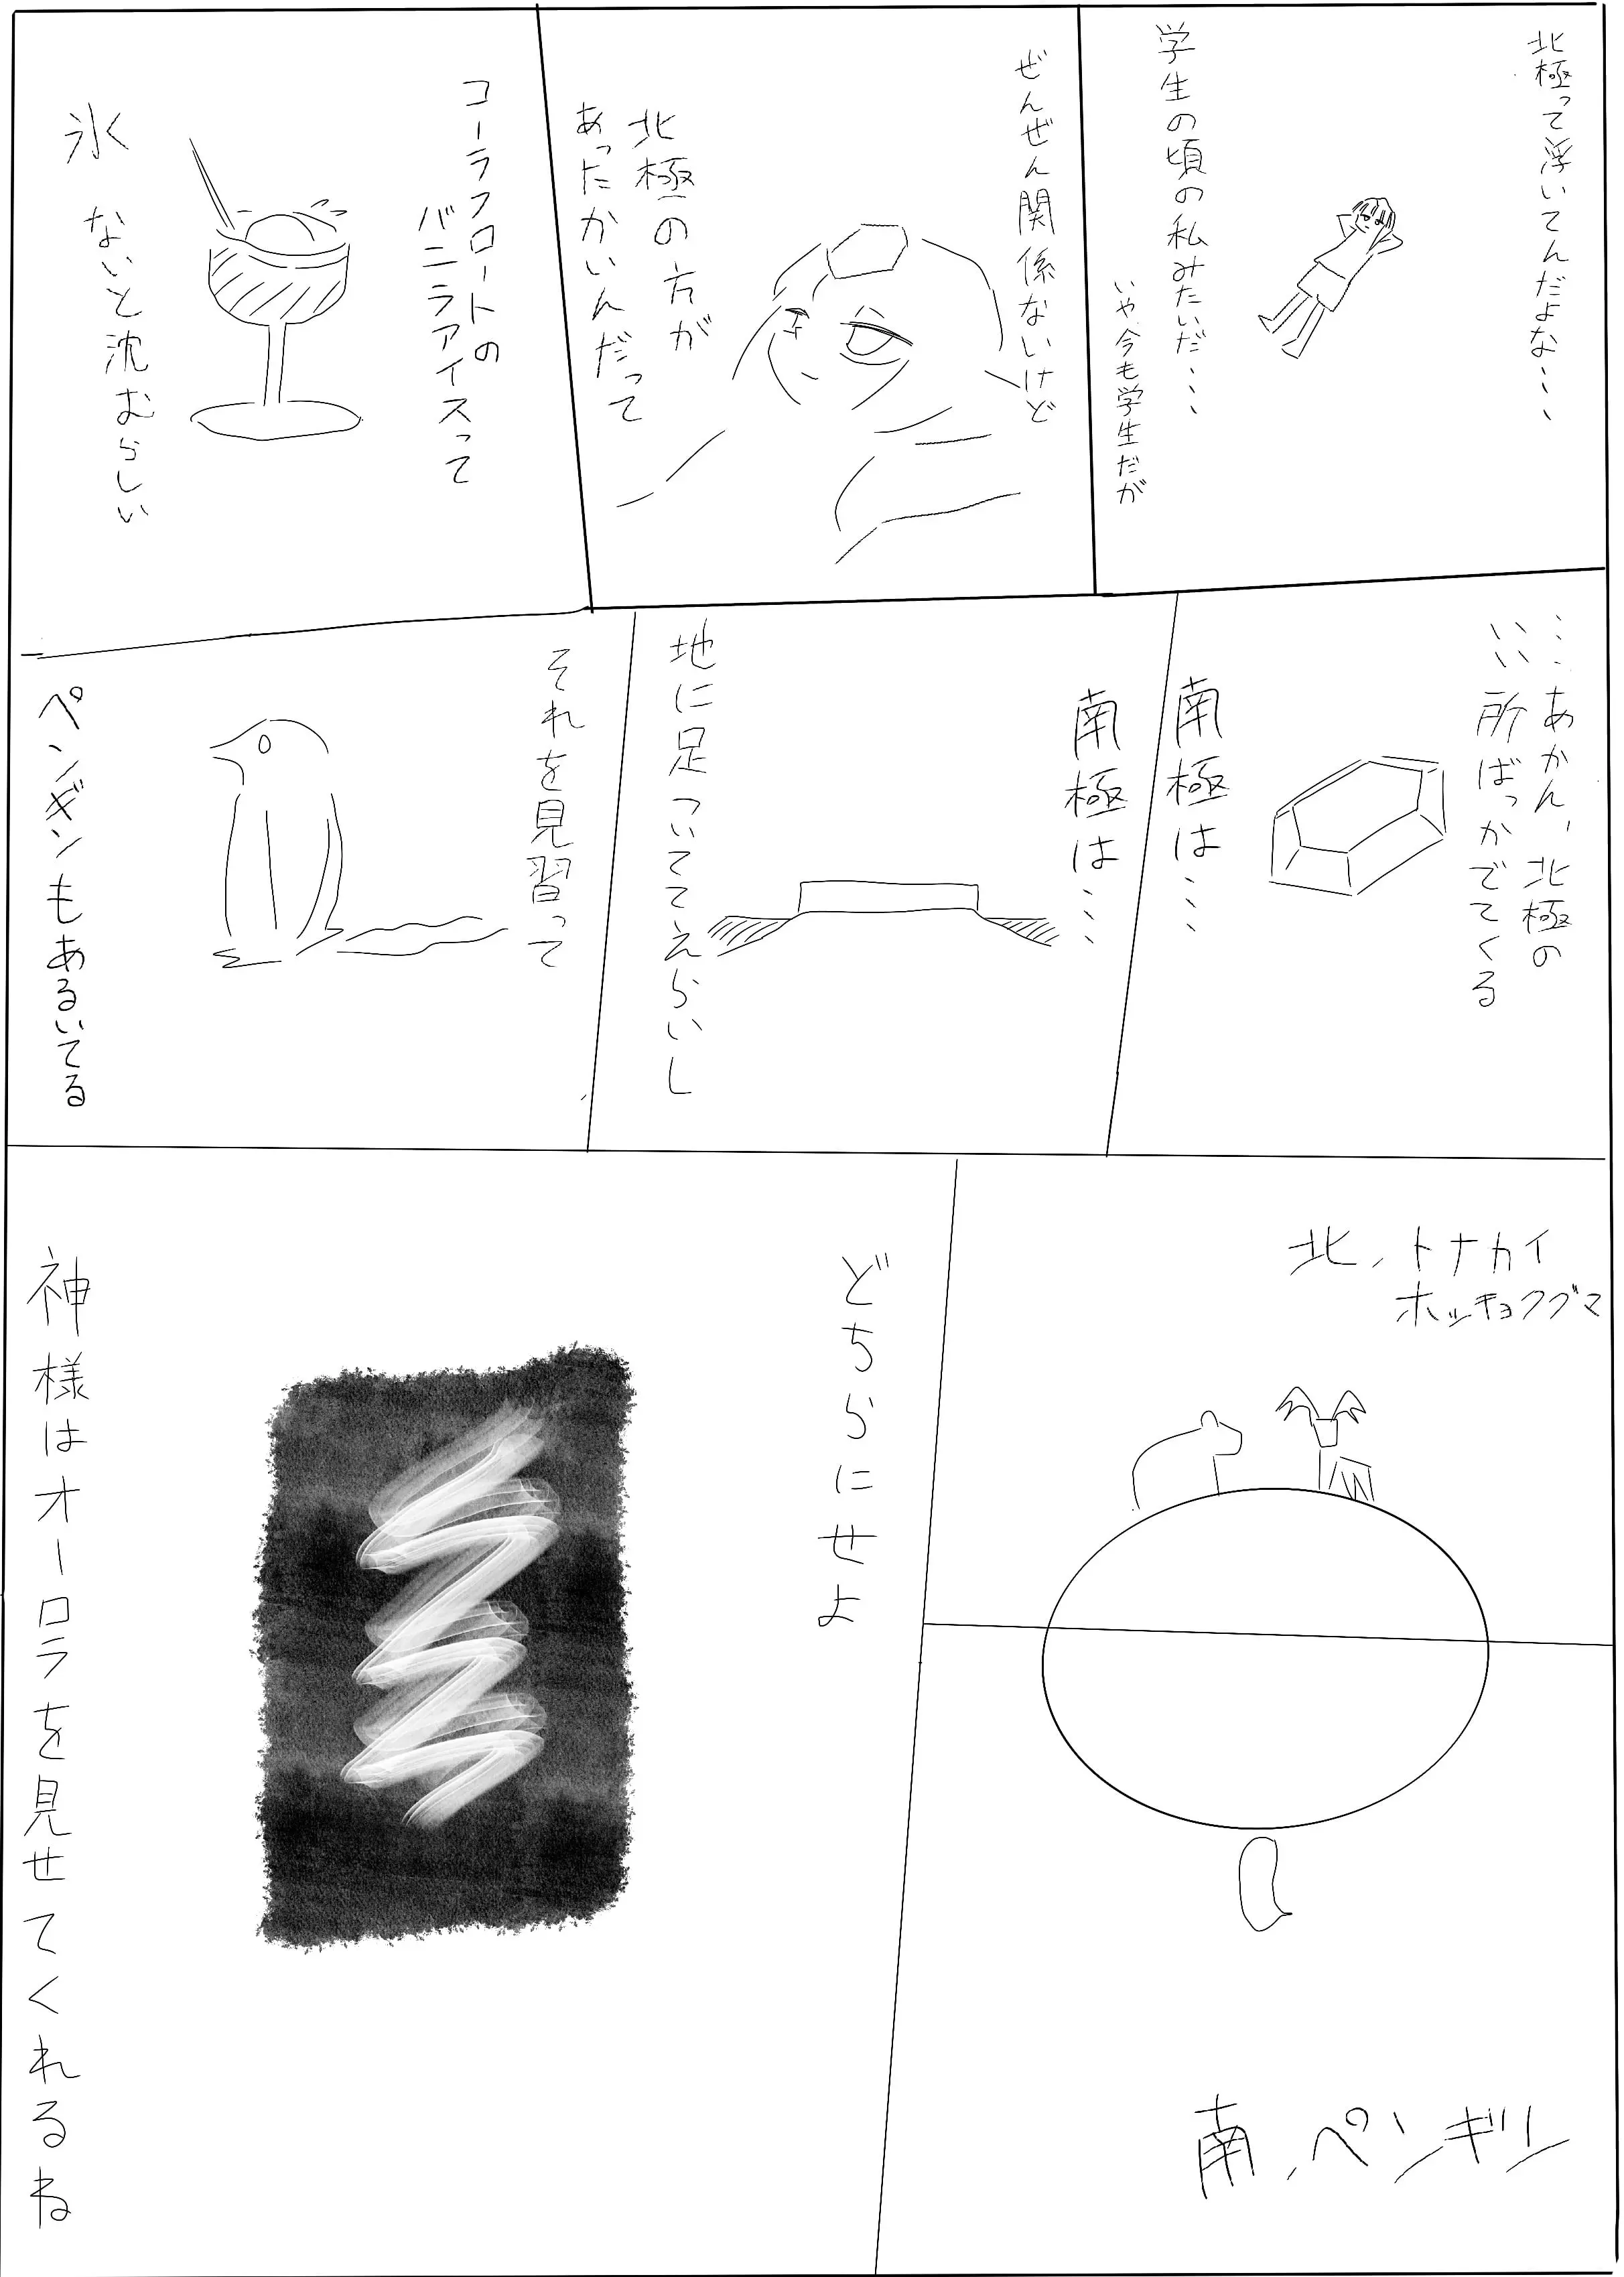 北極って浮いてんだよな・・・
学生の頃の私みたいだ・・・
いや今も学生だが
ぜんぜん関係ないけど
北極の方が
あったかいんだって
コーラフロートの
バニラアイスって
氷
ないと沈むらしい
・・・あかん、北極の
いい所ばっかでてくる
南極は・・・
南極は・・・
地に足ついててえらいし
それを見習って
ペンギンもあるいてる
北、トナカイ
ホッキョクグマ
南、ペンギン
どちらにせよ
神様はオーロラを見せてくれるね